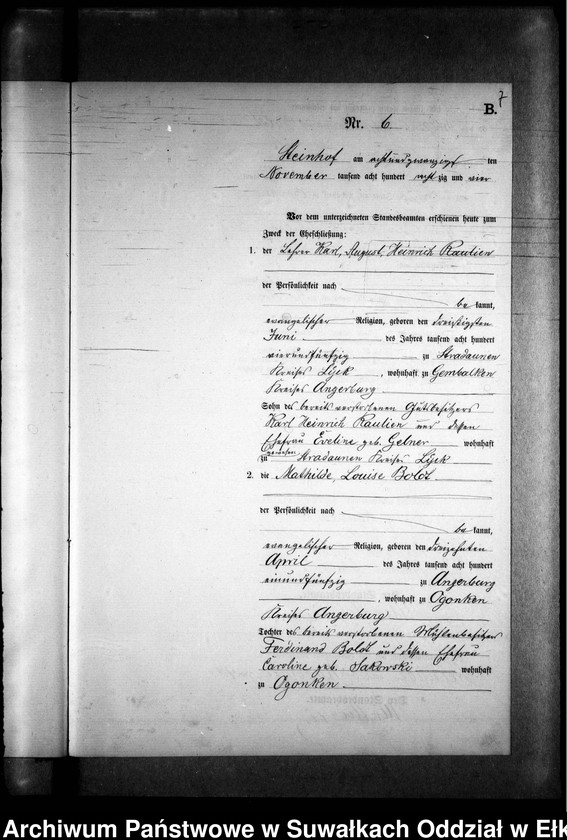 7
B.
Nr. 6
Steinhof am achtundzwanzigst ten
November tausend acht hundert acht zig und vier
Vor dem unterzeichneten Standesbeamten erschienen heute zum
Zweck der Eheschließung:
1. der Lehrer Karl, August, Heinrich Raulien
der Persönlichkeit nach
be kannt,
evangelischer Religion, geboren den dreißigsten
Juni des Jahres tausend acht hundert
vierundfünfzig zu Stradaunen
Kreises Lyck, wohnhaft zu Gembalken
Kreises Angerburg
Sohn des bereits verstorbenen Gutsbesitzers
Karl Heinrich Raulien und dessen
Ehefrau Eveline geb. Gelner wohnhaft
gewesen
zu Stradaunen Kreises Lyck
2. die Mathilde, Louise Boldt
der Persönlichkeit nach
be kannt,
evangelischer Religion, geboren den dreizehnten
April des Jahres tausend acht hundert
einundfünfzig zu Angerburg
, wohnhaft zu Ogonken
Kreises Angerburg
Tochter des bereits verstorbenen Mühlenbesitzers
Ferdinand Boldt und dessen Ehefrau
Caroline geb. Sakowski wohnhaft
zu Ogonken
Archiwum Państwowe w Suwałkach Oddział w Ełk